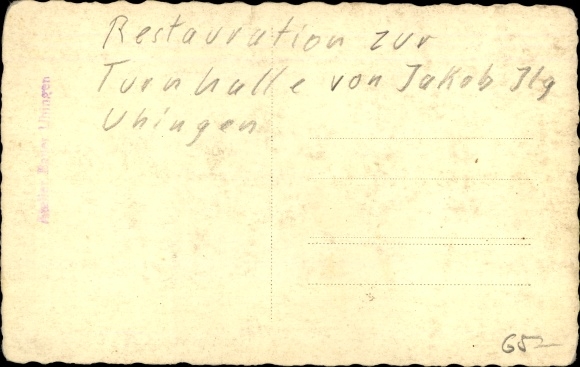 Restauration zur
Turnhalle von Jakob Ilg
Uhingen
Uhingen
65–